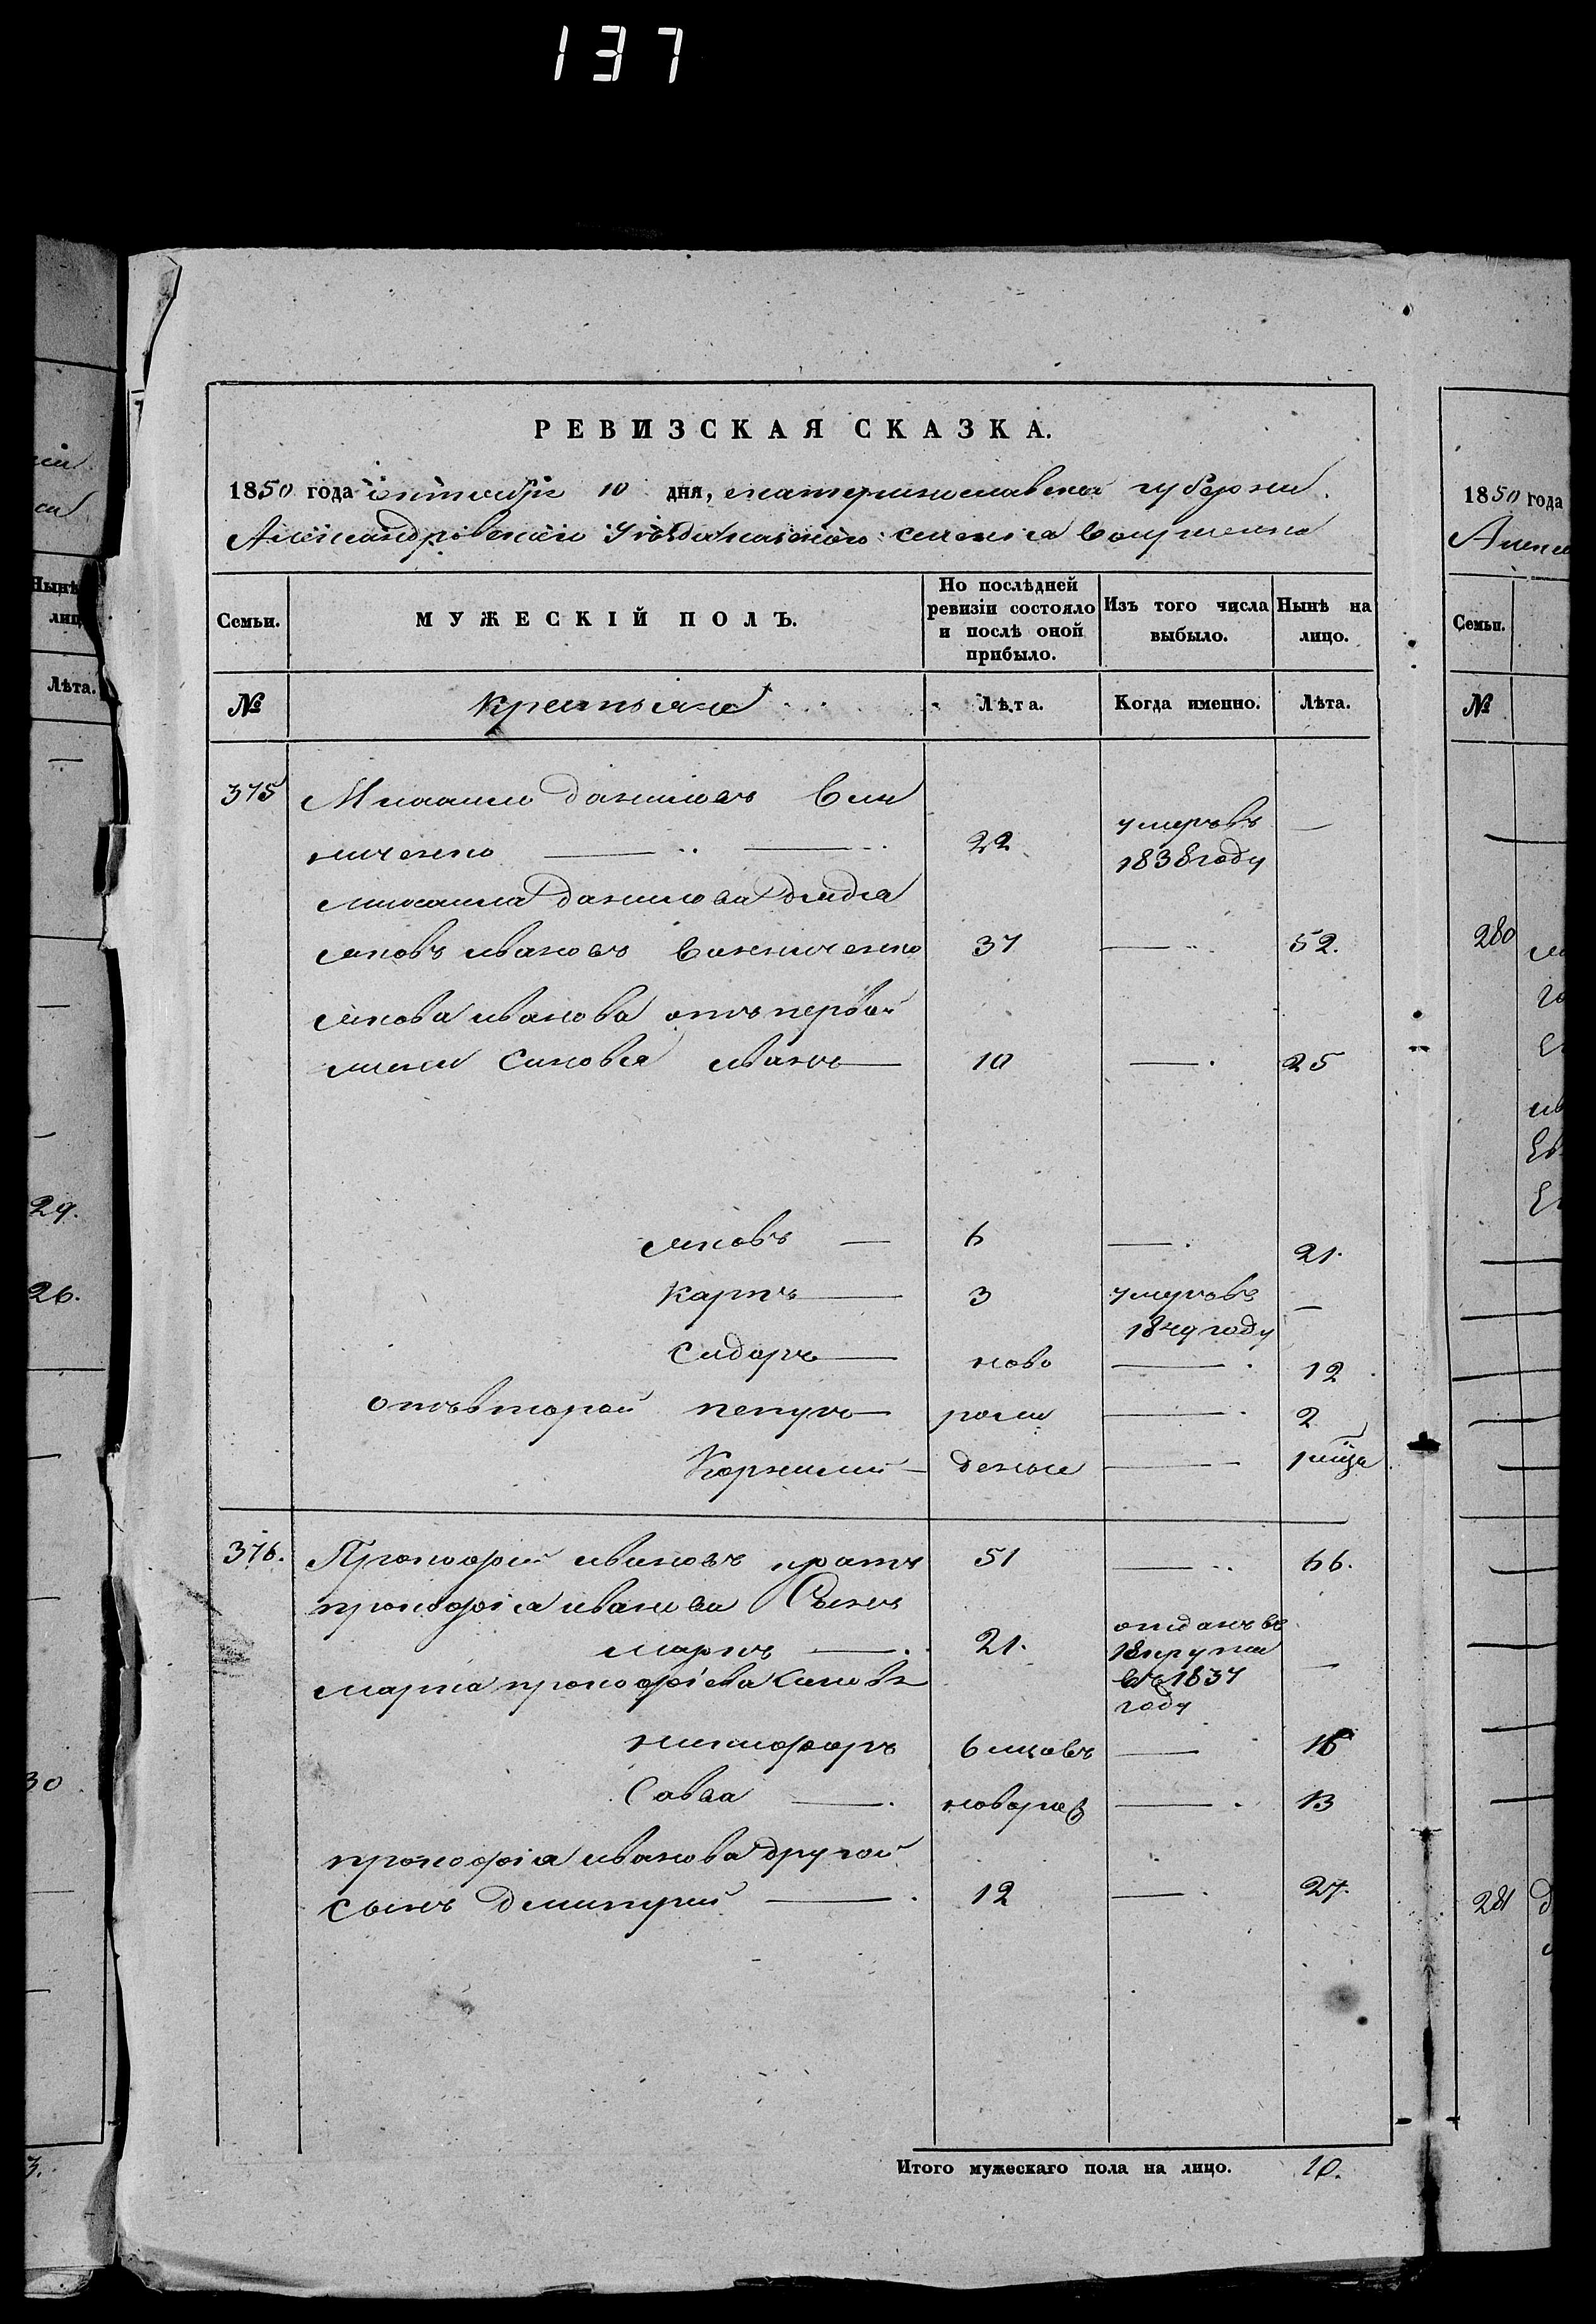 137
РЕВИЗСКАЯ СКАЗКА.
1850 года октября 10 дня, екатеринославской губернии.
Александровского Уезда казенного селения
Семьи.
МУЖЕСКІЙ ПОЛЪ.
По послѣдней ревизіи состояло и послѣ оной прибыло.
Изъ того числа выбыло.
Нынѣ на лицо.
№
Крестьяне
Лѣта.
Когда именно.
Лѣта.
375 Михаило даниловъ Вин
ниченко 22 умеръ въ 1838 году —
михаила данилова дядя
яковъ ивановъ винниченко 37 — 52.
якова иванова отъ первой
жены сыновья иванъ — 10 — 25
яковъ — 6 — 21.
карпъ — 3 умеръ въ 1849 году —
сидоръ — ново — 12
отъ второй петръ — рож — 2
Корнилий — денные — 1
376. Прокофий ивановъ 51 — 66.
прокофія иванова Сынъ
маркъ — 21. отданъ въ рекруты въ 1837 году —
марка прокофіева сыновья
никифоръ 6 мцовъ — 16
Савва — новорож — 13
прокофія иванова другой
сынъ дмитрий — 12 — 27.
Итого мужескаго пола на лицо. 10.
Нынѣ
лиц
Лѣта.
29.
26.
30
3.
1850 года
Семьи.
№
280
281